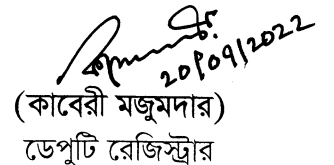 20/09/2022
(কাবেরী মজুমদার)
ডেপুটি রেজিস্ট্রার